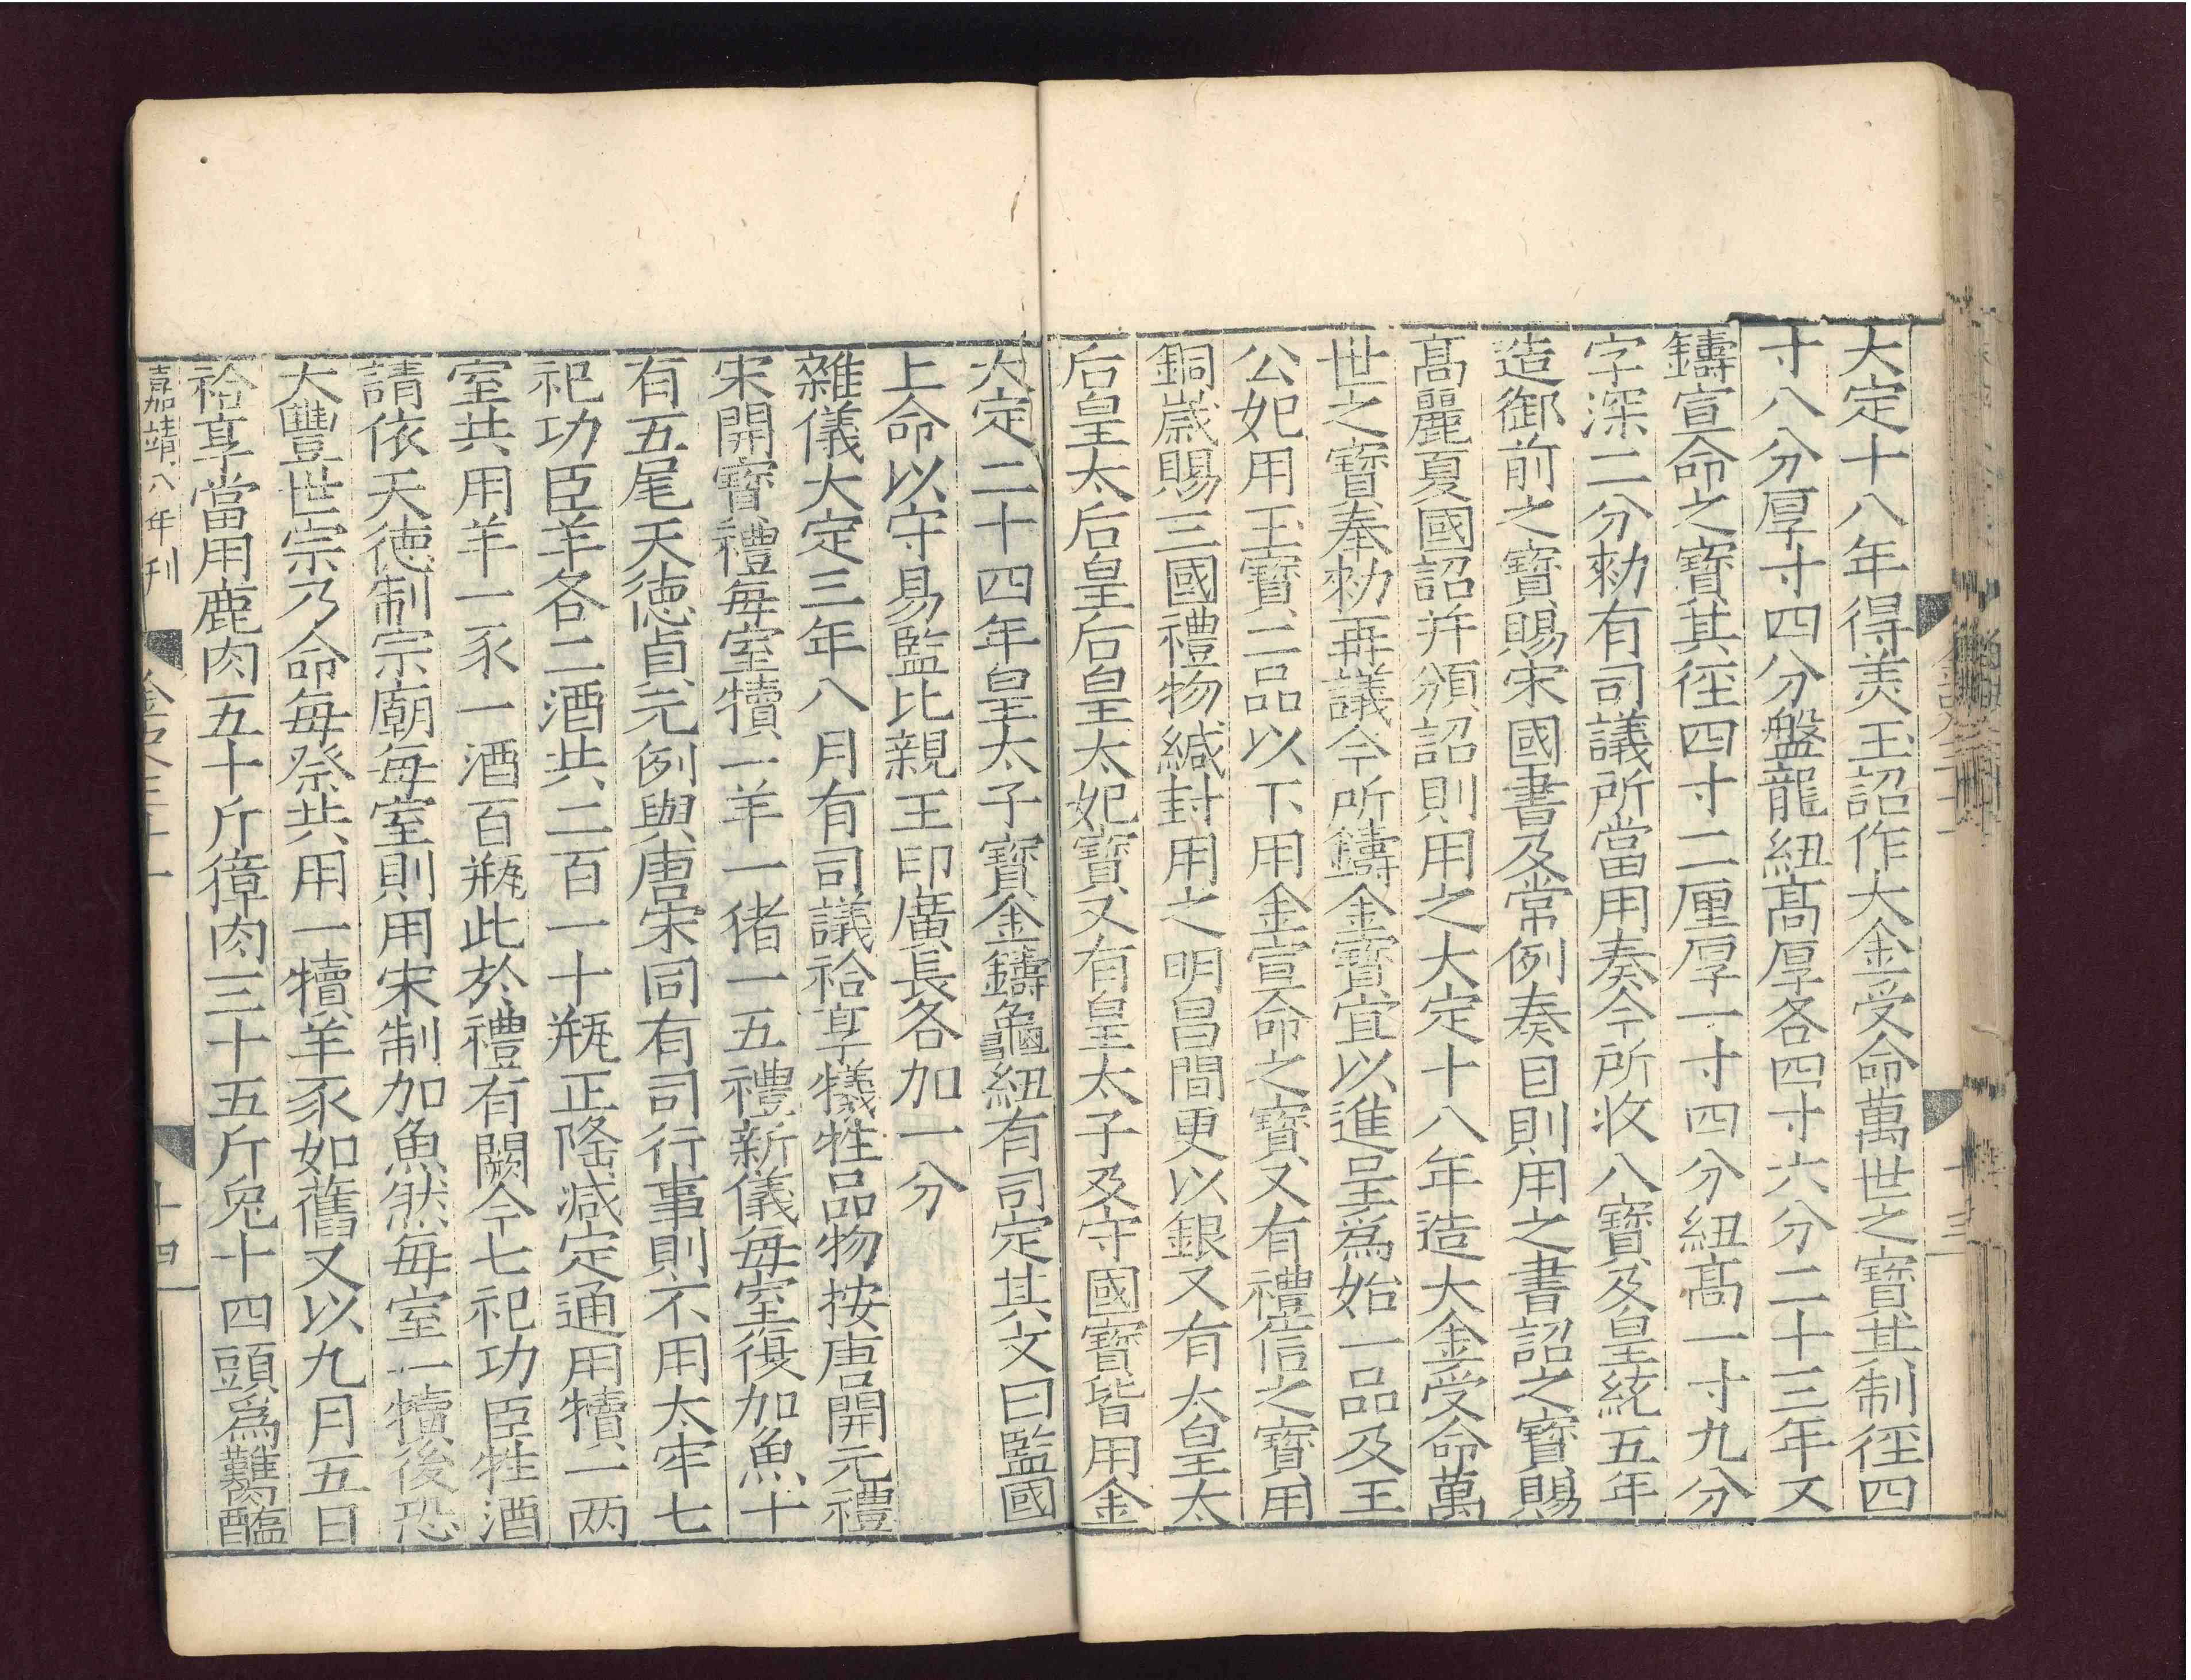 大定十八年得美玉詔作大金受命萬世之寶其制徑四
寸八分厚寸四分盤龍紐高厚各四寸六分二十三年又
鑄宣命之寶其徑四寸二厘厚一寸四分紐高一寸九分
字深二分勑有司議所當用奏今所收八寶及皇統五年
造御前之寶賜宋國書及常例奏目則用之書詔之寶賜
高麗夏國詔并頒詔則用之大定十八年造大金受命萬
世之寶奉勑再議今所鑄金寶宜以進呈爲始一品及王
公妃用玉寶二品以下用金宣命之寶又有禮信之寶用
銅歲賜三國禮物緘封用之明昌間更以銀又有太皇太
后皇太后皇后皇太妃寶又有皇太子及守國寶皆用金
大定二十四年皇太子寶金鑄龜紐有司定其文曰監國
上命以守易監比親王印廣長各加一分
雜儀大定三年八月有司議祫享犧牲品物按唐開元禮
宋開寶禮每室犢一羊一猪一五禮新儀每室復加魚十
有五尾天德貞元例與唐宋同有司行事則不用太牢七
祀功臣羊各二酒共二百一十瓶正隆减定通用犢一两
室共用羊一豕一酒百瓶此於禮有闕今七祀功臣牲酒
請依天德制宗廟每室則用宋制加魚然每室一犢後恐
大豐世宗乃命每祭共用一犢羊豕如舊又以九月五日
祫享當用鹿肉五十斤獐肉三十五斤兔十四頭爲臡醢
嘉靖八年刊 金史三十一 十四